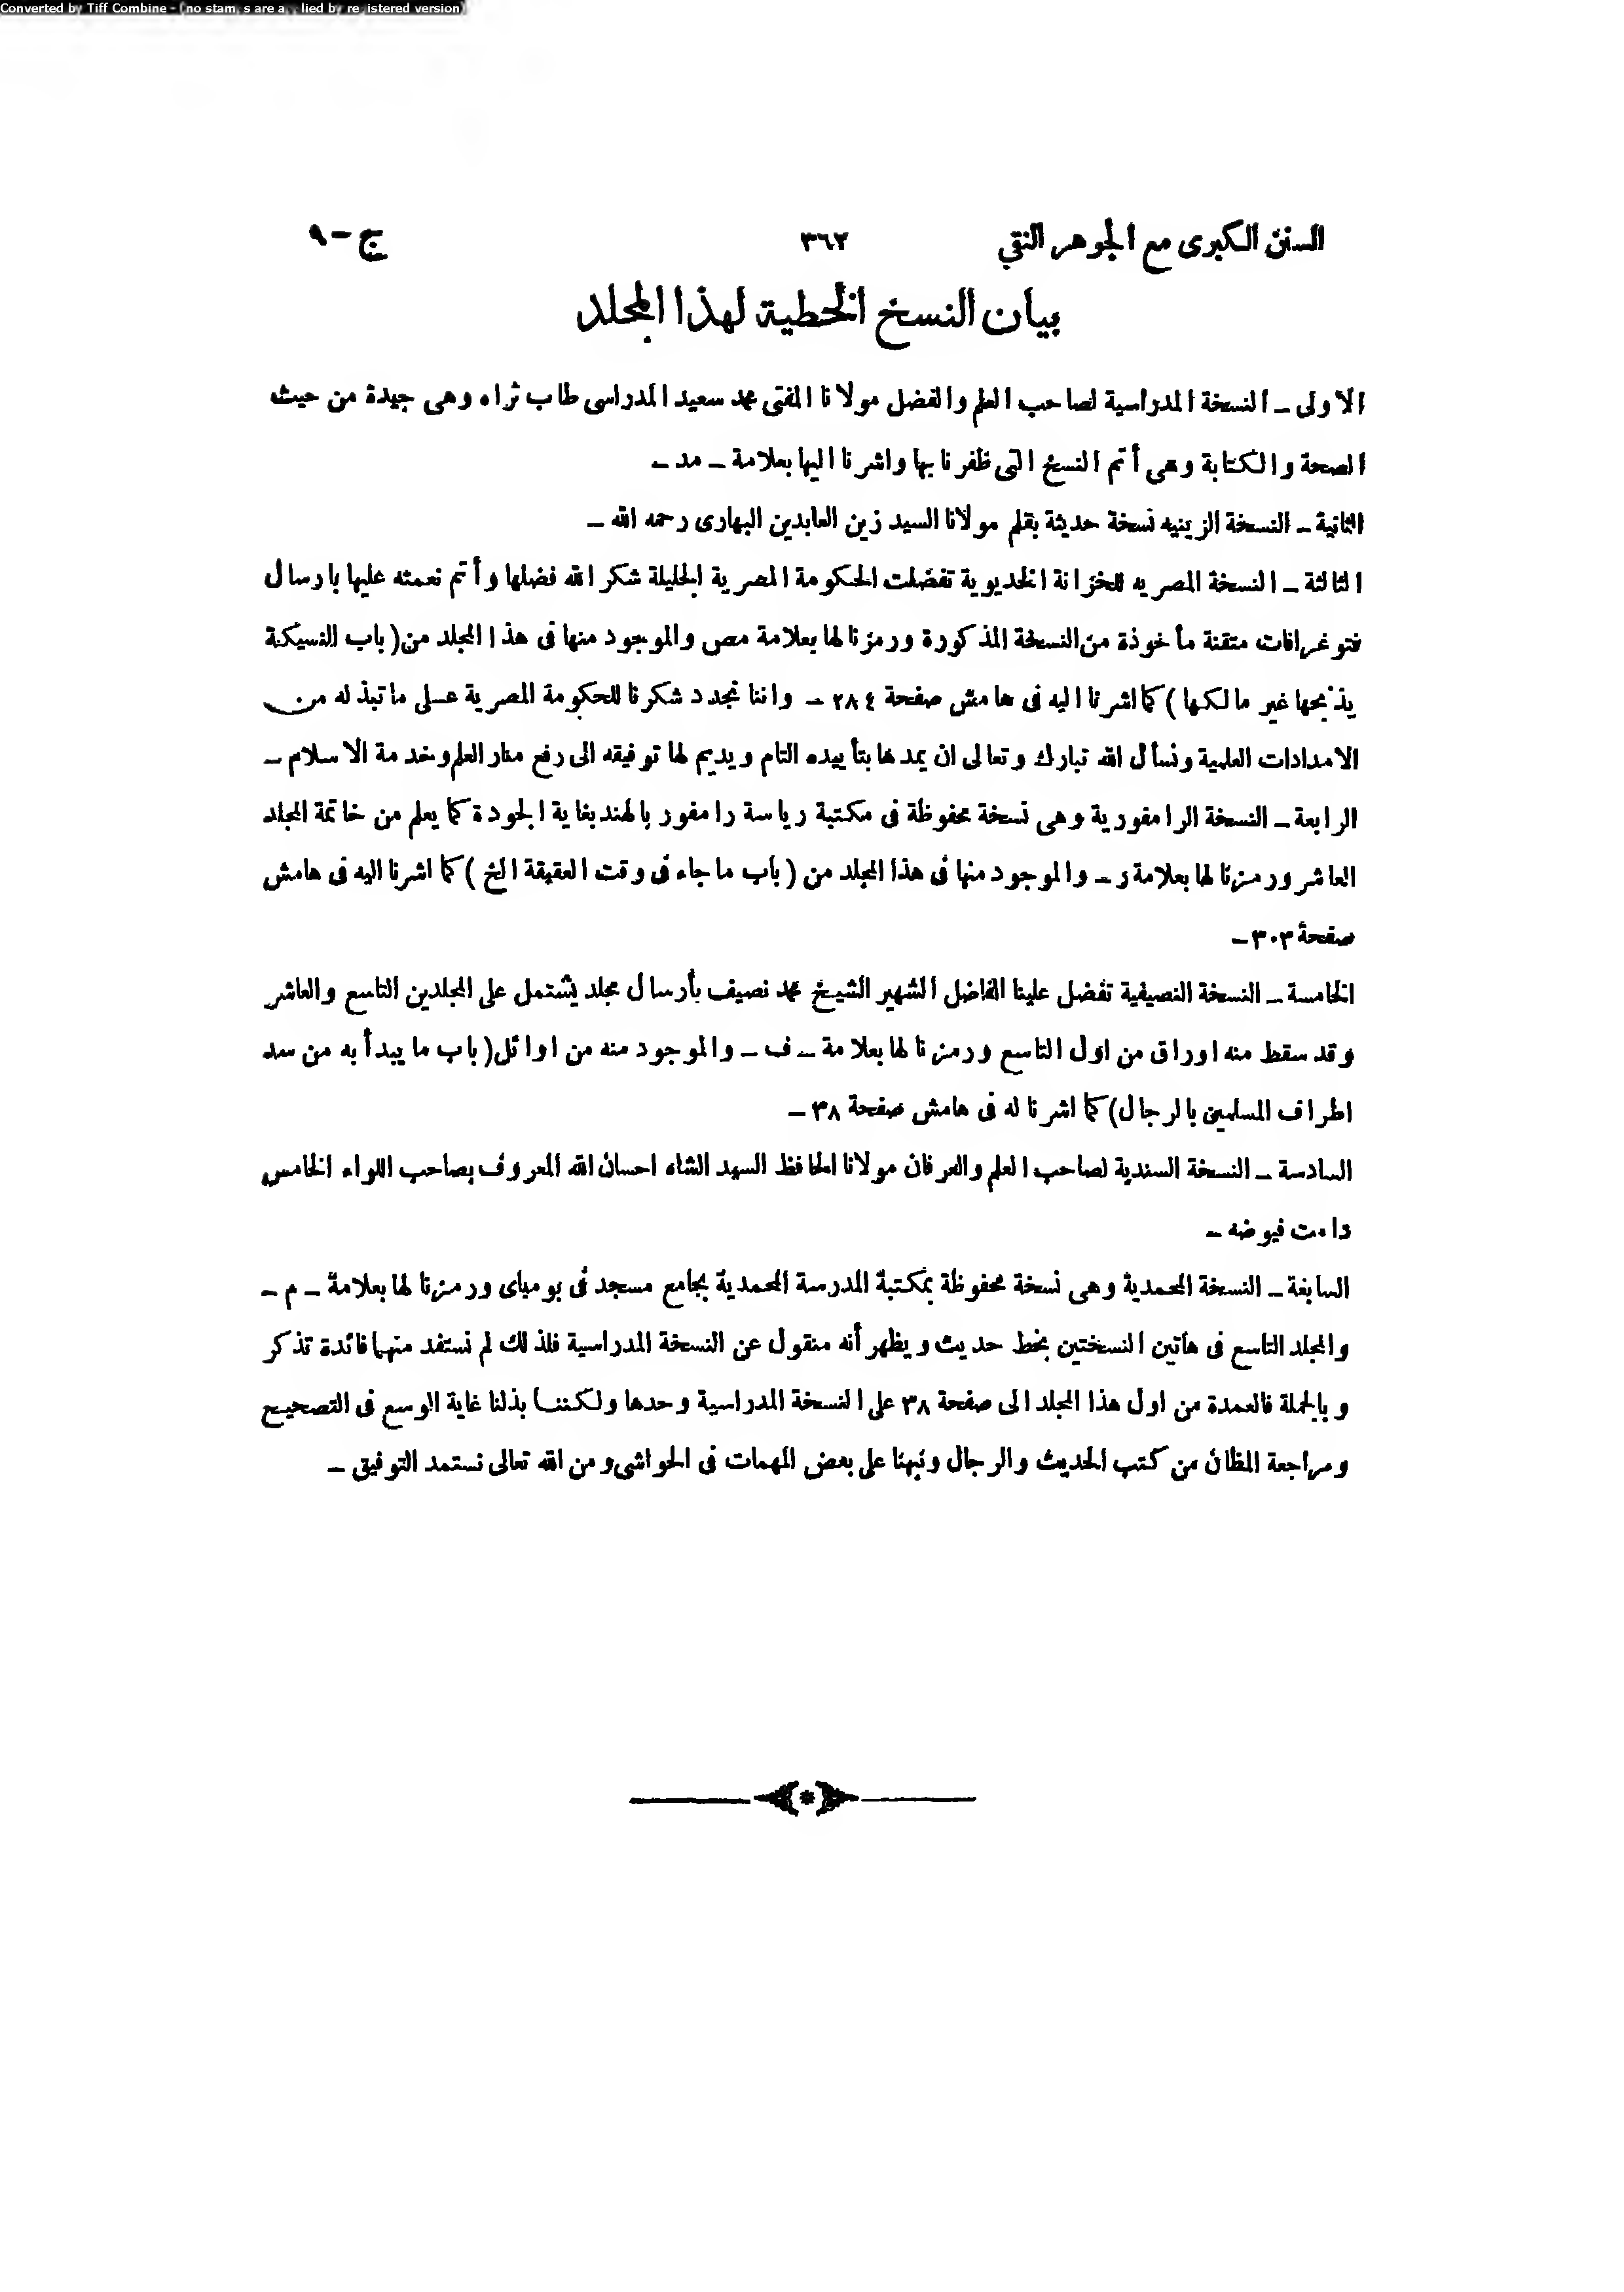 Converted by Tiff Combine - (no stamps are applied by registered version)
السنن الكبرى مع الجوهر النقي ٣٦٢ ج-٩
بيان النسخ الخطية لهذا المجلد
الاولى ـ النسخة المدراسية لصاحب العلم والفضل مولانا المفتى محمد سعيد المدراسى طاب ثراه وهى جيدة من حيث
الصحة والكتابة وهى أتم النسخ التى ظفرنا بها واشرنا اليها بعلامة ـ مد ـ
الثانية ـ النسخة الزينيه نسخة حديثة بقلم مولانا السيد زين العابدين البهارى رحمه الله ـ
الثالثة ـ النسخة المصريه للخزانة الخديوية تفضلت الحكومة المصرية الجليلة شكر الله فضلها وأتم نعمته عليها بارسال
فتوغرافات متقنة مأخوذة من النسخة المذكورة ورمزنا لها بعلامة مص والموجود منها فى هذا المجلد من (باب النسيكة
يذبحها غير مالكها) كما اشرنا اليه فى هامش صفحة ٢٨٤ ـ واننا نجدد شكرنا للحكومة المصرية عـلى ما تبذله من
الامدادات العلمية ونسأل الله تبارك وتعالى ان يمدها بتأييده التام ويديم لها توفيقه الى رفع منار العلم وخدمة الاسلام ـ
الرابعة ـ النسخة الرامفورية وهى نسخة محفوظة فى مكتبة رياسة رامفور بالهند بغاية الجودة كما يعلم من خاتمة المجلد
العاشر ورمزنا لها بعلامة ر ـ والموجود منها فى هذا المجلد من (باب ما جاء فى وقت العقيقة الخ) كما اشرنا اليه فى هامش
صفحة ٣٠٣ ـ
الخامسة ـ النسخة النصيفية تفضل علينا الفاضل الشهير الشيخ محمد نصيف بأرسال مجلد يشتمل على المجلدين التاسع والعاشر
وقد سقط منه اوراق من اول التاسع ورمزنا لها بعلامة ـ ف ـ والموجود منه من اوائل (باب ما يبدأ به من سد
اطراف المسلمين بالرجال) كما اشرنا له فى هامش صفحة ٣٨ ـ
السادسة ـ النسخة السندية لصاحب العلم والعرفان مولانا الحافظ السيد الشاه احسان الله المعروف بصاحب اللواء الخامس
دامت فيوضه ـ
السابعة ـ النسخة المحمدية وهى نسخة محفوظة بمكتبة المدرسة المحمدية بجامع مسجد فى بومباى ورمزنا لها بعلامة ـ م ـ
والمجلد التاسع فى هاتين النسختين بخط حديث ويظهر أنه منقول عن النسخة المدراسية فلذلك لم نستفد منهما فائدة تذكر
وبالجملة فالعمدة من اول هذا المجلد الى صفحة ٣٨ على النسخة المدراسية وحدها ولكننـا بذلنا غاية الوسع فى التصحيح
ومراجعة المظان من كتب الحديث والرجال ونبهنا على بعض المهمات فى الحواشى ومن الله تعالى نستمد التوفيق ـ